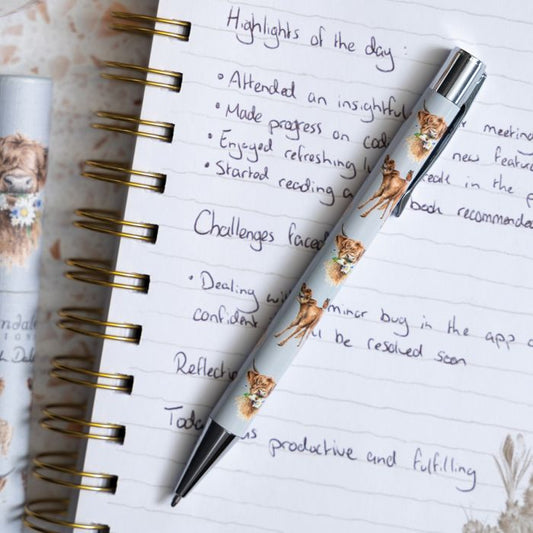 Highlights of the day :
• Attended an insightful meeting
• Made progress on new feature
• Enjoyed refreshing in the
• Started reading a book recommended
Challenges faced
• Dealing minor bug in the app
confident be resolved soon
productive and fulfilling